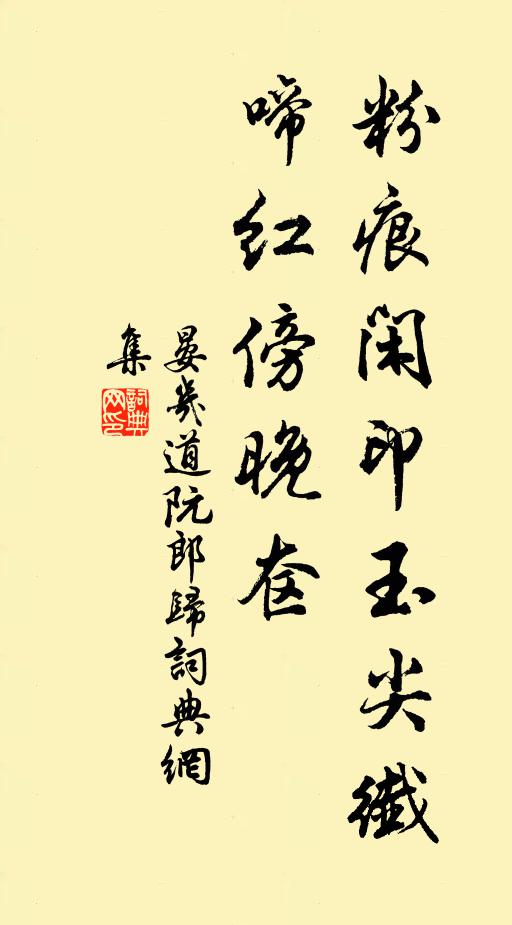 粉痕閑印玉尖纖
啼紅傍晚奩
晏幾道阮郎歸詞典網
集
詞典
网印